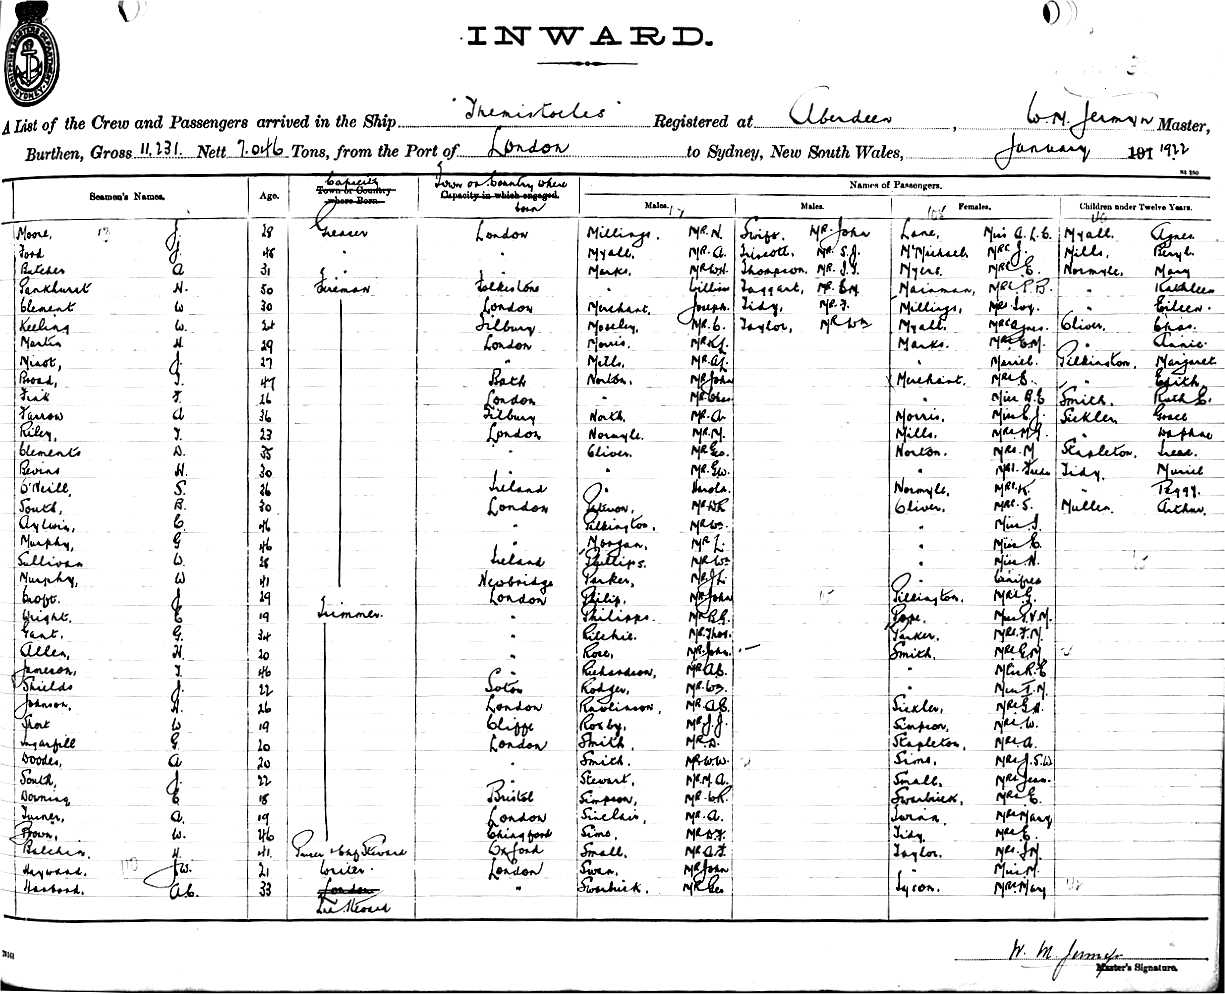 INWARD.
A List of the Crew and Passengers arrived in the Ship "Themistocles" Registered at Aberdeen, W. M. Jermyn Master,
Burthen, Gross 11,231. Nett 7.046 Tons, from the Port of London to Sydney, New South Wales, January 191 1922
Capacity Town or Country where
Seamen's Names. Age. Town or Country where Born. Capacity in which engaged. born Names of Passengers.
Males. Males. Females. Children under Twelve Years.
Moore, J. 28 Greaser London Millings, Mr. N. Swift, Mr. John Lane, Miss A. L. C. Myall, Agnes
Ford J. 48 " " Myall, Mr. A. Triscott, Mr. S. J. McMichael, Mrs. J. Mills, Beryl
Butcher A 31 " " Marks, Mr. Wm. Thompson, Mr. J. Y. Myers, Mrs. E. Normyle, Mary
Pankhurst H. 50 Fireman Folkestone " William Taggart, Mr. Mainman, Mrs. P. B. " Kathleen
Clement W 30 London Merchant, Joseph Tidy, Mr. F. Millings, Mrs. Ivy. " Eileen
Keeling W. 24 Tilbury Moseley, Mr. C. Taylor, Mr. Wm Myall, Mrs. Agnes. Oliver, Chas.
Martin H 29 London Morris, Marks, Mrs. E. M. " Annie
Minot, J. 27 " Mills, Mr. A. " Muriel Pilkington, Margaret
Broad, T. 47 Bath Norton, Mr. John Merchant, Mrs. E. " Edith
Fisk F 26 London " Mr. Chas. " Miss B. E Smith, Ruth E.
Farrow A 36 Tilbury North, Mr. A. Morris, Miss E. J. Sickler, Grace
Riley, T. 23 London Normyle, Mr. M. Mills, " Daphne
Clements D. 35 " Oliver, Mr. Geo. Norton, Mrs. M Stapleton,
Bevins H. 30 " " Mr. Gw. " Tidy, Muriel
O'Neill, S. 36 Ireland " Harold. Normyle, Mrs. K. " Peggy.
South, B. 30 London Oliver, Mrs. S. Mullen, Arthur.
Aylwin, C. 46 " Pilkington, Mr. Wm. " Miss
Murphy, G 46 " Morgan, Mr. L. " Miss E.
Sullivan W. 28 Ireland Phillips, Mr. Wm " Miss N.
Murphy, W 41 Newbridge Parker, Mr. J. L. " Winifred
Croft. J. 29 London Philip, Mr. John Pilkington, Mrs. E.
Wright, C 19 Trimmer. " Philipps. Mr. B. G. Pope,
Gant, G. 34 " Ritchie. Mr. Thos. Parker, Mrs. F. M.
Allen, H. 20 " Rose, Mr. John. Smith, Mrs. E. M
Jameson, T. 46 " Richardson, Mr. A. E. " Miss R. E
Shields J. 22 Soton Rodger, Mr. Wm. "
Johnson, H. 26 London Rawlinson, Mr. A. E. Sickler,
Short W 19 Cliffe Roxby, Mr. J. J. Simpson, Mrs. W.
Sugarfill G. 20 London Smith, Mr. D. Stapleton, Mrs. A.
Doodes, A 20 " Smith. Mr. W. W. Sims, Mrs. J. S. W
South, J. 22 " Stewart, Mr. M. A. Small, Mrs. Jean.
Downing E 18 Bristol Simpson, Mr. W. R. Swarbrick, Mrs. E.
Turner, A. 19 London Sinclair, Mr. A. Swinn Mrs. Mary
Brown, W. 46 Chingford Sims, Tidy, Mrs. E.
Balchin, H. 41 Purser & Chf Steward Oxford Small, Mr. A. F. Taylor, Mrs. J. M
Hayward. J. W. 21 Writer. London Swan, Mr. John " Miss M.
Harbord. A. C. 33 London " Swarbrick. Mr. Geo Tyson. Mrs. Mary
Steward
W. M. Jermyn
Master's Signature.